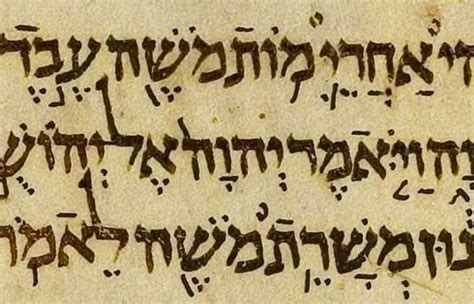 הי אַחֲרֵי מוֹת מֹשֶׁה עֶבֶד
וָה וַיֹּאמֶר יְהוָה אֶל יְהוֹשֻׁ
נוּן מְשָׁרֵת מֹשֶׁה לֵאמֹר